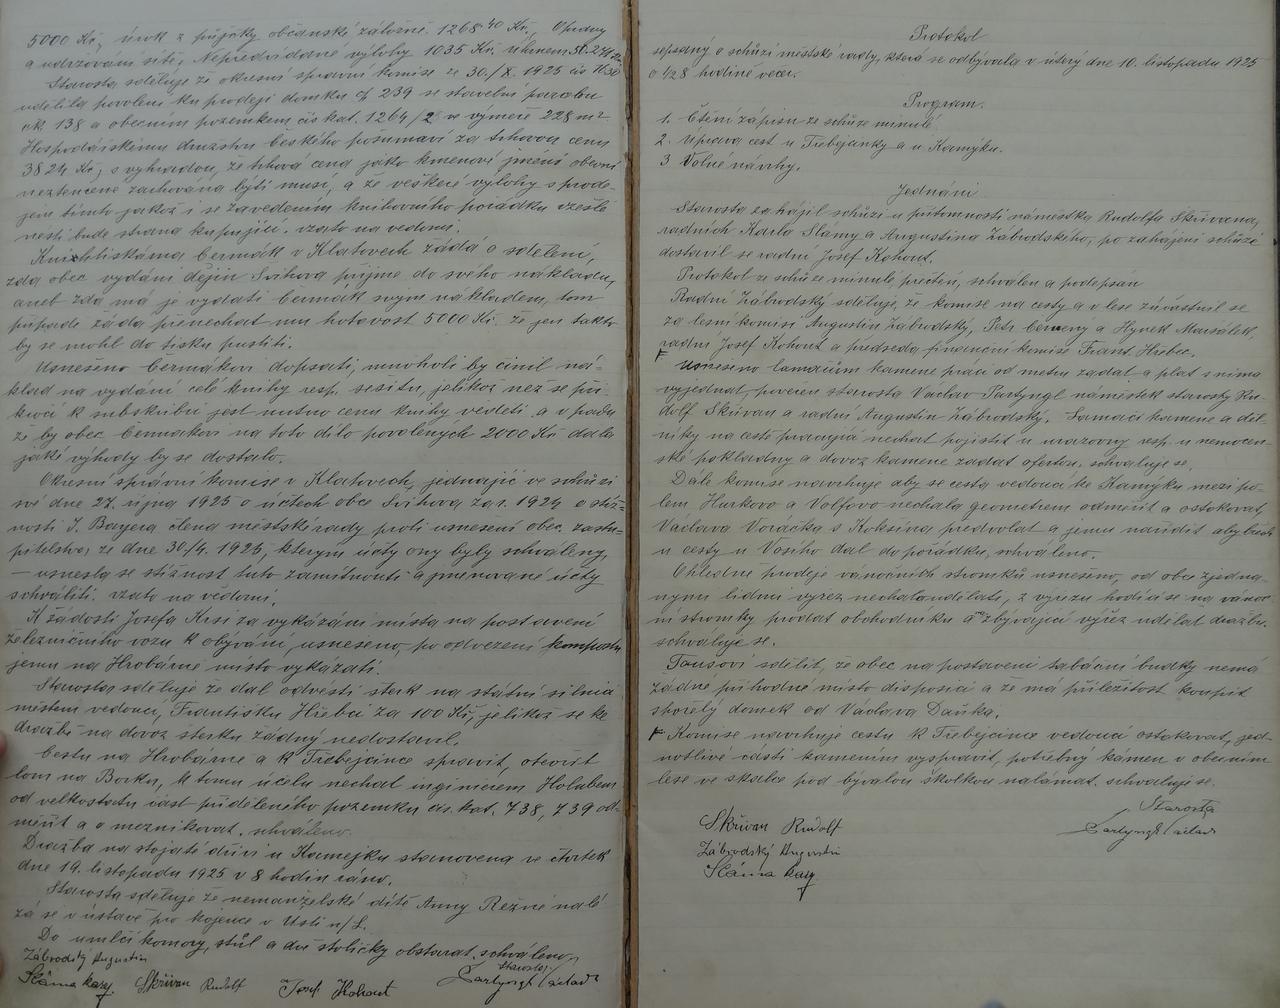 5000 Kč, úrok z půjčky občanské záložně 1268·40 Kč, Opravy
a udržování sítě, Nepředvídané výlohy 1035 Kč. Úhrnem
Starosta sděluje že okresní správní komise ze 30./X. 1925 čís
udělila povolení ku prodeji domku čp 239 se stavební parcelou
čk. 138 a obecním pozemkem čís kat. 1264/2 ve výměře 228 m²
Hospodářskému družstvu českého pošumaví za trhovou cenu
3824 Kč, s výhradou, že trhová cena jako kmenové jmění obecní
neztenčeně zachována býti musí, a že veškeré výlohy s prode-
jem tímto jakož i se zavedením knihovního pořádku vzešlé
nésti bude strana kupující. vzato na vědomí.
Knihtiskárna Čermák v Klatovech žádá o sdělení,
zda obec vydání dějin Švihova přijme do svého nákladu,
aneb zda má je vydati Čermák svým nákladem, tom
případě žádá přenechat mu hotovost 5000 Kč. že jen takto
by se mohl do tisku pustiti.
Usneseno Čermákovi dopsati, mnoholi by činil ná-
klad na vydání celé knihy resp. sešitu, jelikož než se při-
kročí k subskribci jest nutno cenu knihy věděti, a v pádu
že by obec Čermákovi na toto dílo povolených 2000 Kč dala
jaké výhody by se dostalo.
Okresní správní komise v Klatovech, jednajíc ve schůzi
své dne 27. října 1925 o účtech obce Švihova za r. 1924 o stíž-
nosti J. Bayera člena městské rady proti usnesení obec. zastu-
pitelstva ze dne 30./4. 1925, kterým účty ony byly schváleny,
— usnesla se stížnost tuto zamítnouti a jmenované účty
schváliti. vzato na vědomí.
K žádosti Josefa Krse za vykázání místa na postavení
železničního vozu k obývání, usneseno, po odvezení kompostu
jemu na Hrobárně místo vykázati.
Starosta sděluje že dal odvésti štěrk na státní silnici
městem vedoucí, Františku Hřebci za 100 Kč, jelikož se ke
dražbě na dovoz štěrku žádný nedostavil.
Cestu na Hrobárně a k Třebejčince spravit, otevřít
lom na Borku, k tomu účelu nechat inginierem Holubem
od velkostatu část přiděleného pozemku čís. kat. 738, 739 od-
měřit a o mezníkovat. schváleno.
Dražba na stojaté dříví u Kamejku stanovena ve čtvrtek
dne 19. listopadu 1925 v 8 hodin ráno.
Starosta sděluje že nemanželské dítě Anny Režné nalé-
zá se v ústavě pro kojence v Ústí n/L.
Do umlčí komory, stůl a dvě stoličky obstarat, schváleno,
Zábrodský Augustin
Starosta
Sláma Karel Skřivan Rudolf Josef Kohout Partyngl Václav
Protokol
sepsaný o schůzi městské rady, která se odbývala v úterý dne 10. listopadu 1925
o ½8 hodině večer.
Program.
1. Čtení zápisu ze schůze minulé.
2. Úprava cest u Třebejčinky a u Kamýku.
3 Volné návrhy.
Jednání
Starosta zahájil schůzi u přítomnosti náměstka Rudolfa Skřivana,
radních Karla Slámy a Augustina Zábrodského, po zahájení schůze
dostavil se radní Josef Kohout.
Protokol ze schůze minulé přečten, schválen a podepsán
Radní Zábrodský sděluje, že komise na cesty a v lese zúčastnil se
za lesní komisi Augustin Zábrodský, Petr Červený a Hynek Maršálek,
radní Josef Kohout a předseda finanční komise Frant. Hřebec.
Usneseno lamačům kamene práci od metru zadat a plat s nima
vyjednat, pověřen starosta Václav Partyngl náměstek starosty Ru-
dolf Skřivan a radní Augustin Zábrodský. Lamači kamene a děl-
níky na cestě pracující nechat pojistit u úrazovny resp. u nemocen-
ské pokladny a dovoz kamene zadat ofertou, schvaluje se.
Dále komise navrhuje aby se cesta vedoucí ke Kamýku mezi po-
lem Hurkovo a Volfovo nechala geometrem odměřit a ostokovat,
Václava Voráčka s Kokšína předvolat a jemu nařídit aby břeh
u cesty u Vosího dal do pořádku, schváleno.
Ohledně prodeje vánočních stromků usneseno, od obce zjedna-
nými lidmi výřez nechat udělati, z výřezu hodící se na vánoč-
ní stromky prodat obchodníku a na zbývající výřez udělat dražbu.
schvaluje se.
Toušovi sdělit, že obec na postavení tabáční budky nemá
žádné příhodné místo disposici a že má příležitost koupit
shořelý domek od Václava Daňka.
Komise navrhuje cestu k Třebejčince vedoucí ostokovat, jed-
notlivé části kamením vyspravit, potřebný kámen v obecním
lese ve skalce pod bývalou školkou nalámat. schvaluje se.
Starosta
Partyngl Václav
Skřivan Rudolf
Zábrodský Augustin
Sláma Karel